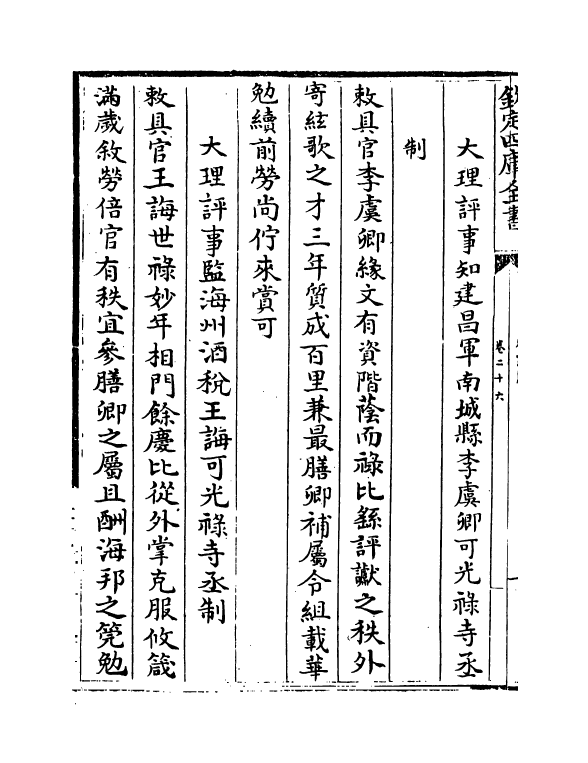 欽定四庫全書
卷二十六
大理評事知建昌軍南城縣李虞卿可光祿寺丞
制
敕具官李虞卿緣文有資階蔭而祿比繇評讞之秩外
寄絃歌之才三年質成百里兼最膳卿補屬令組載華
勉續前勞尚佇來賞可
大理評事監海州酒稅王誨可光祿寺丞制
敕具官王誨世祿妙年相門餘慶比從外掌克服攸箴
滿歲敘勞倍官有秩宜參膳卿之屬且酬海邦之筦勉